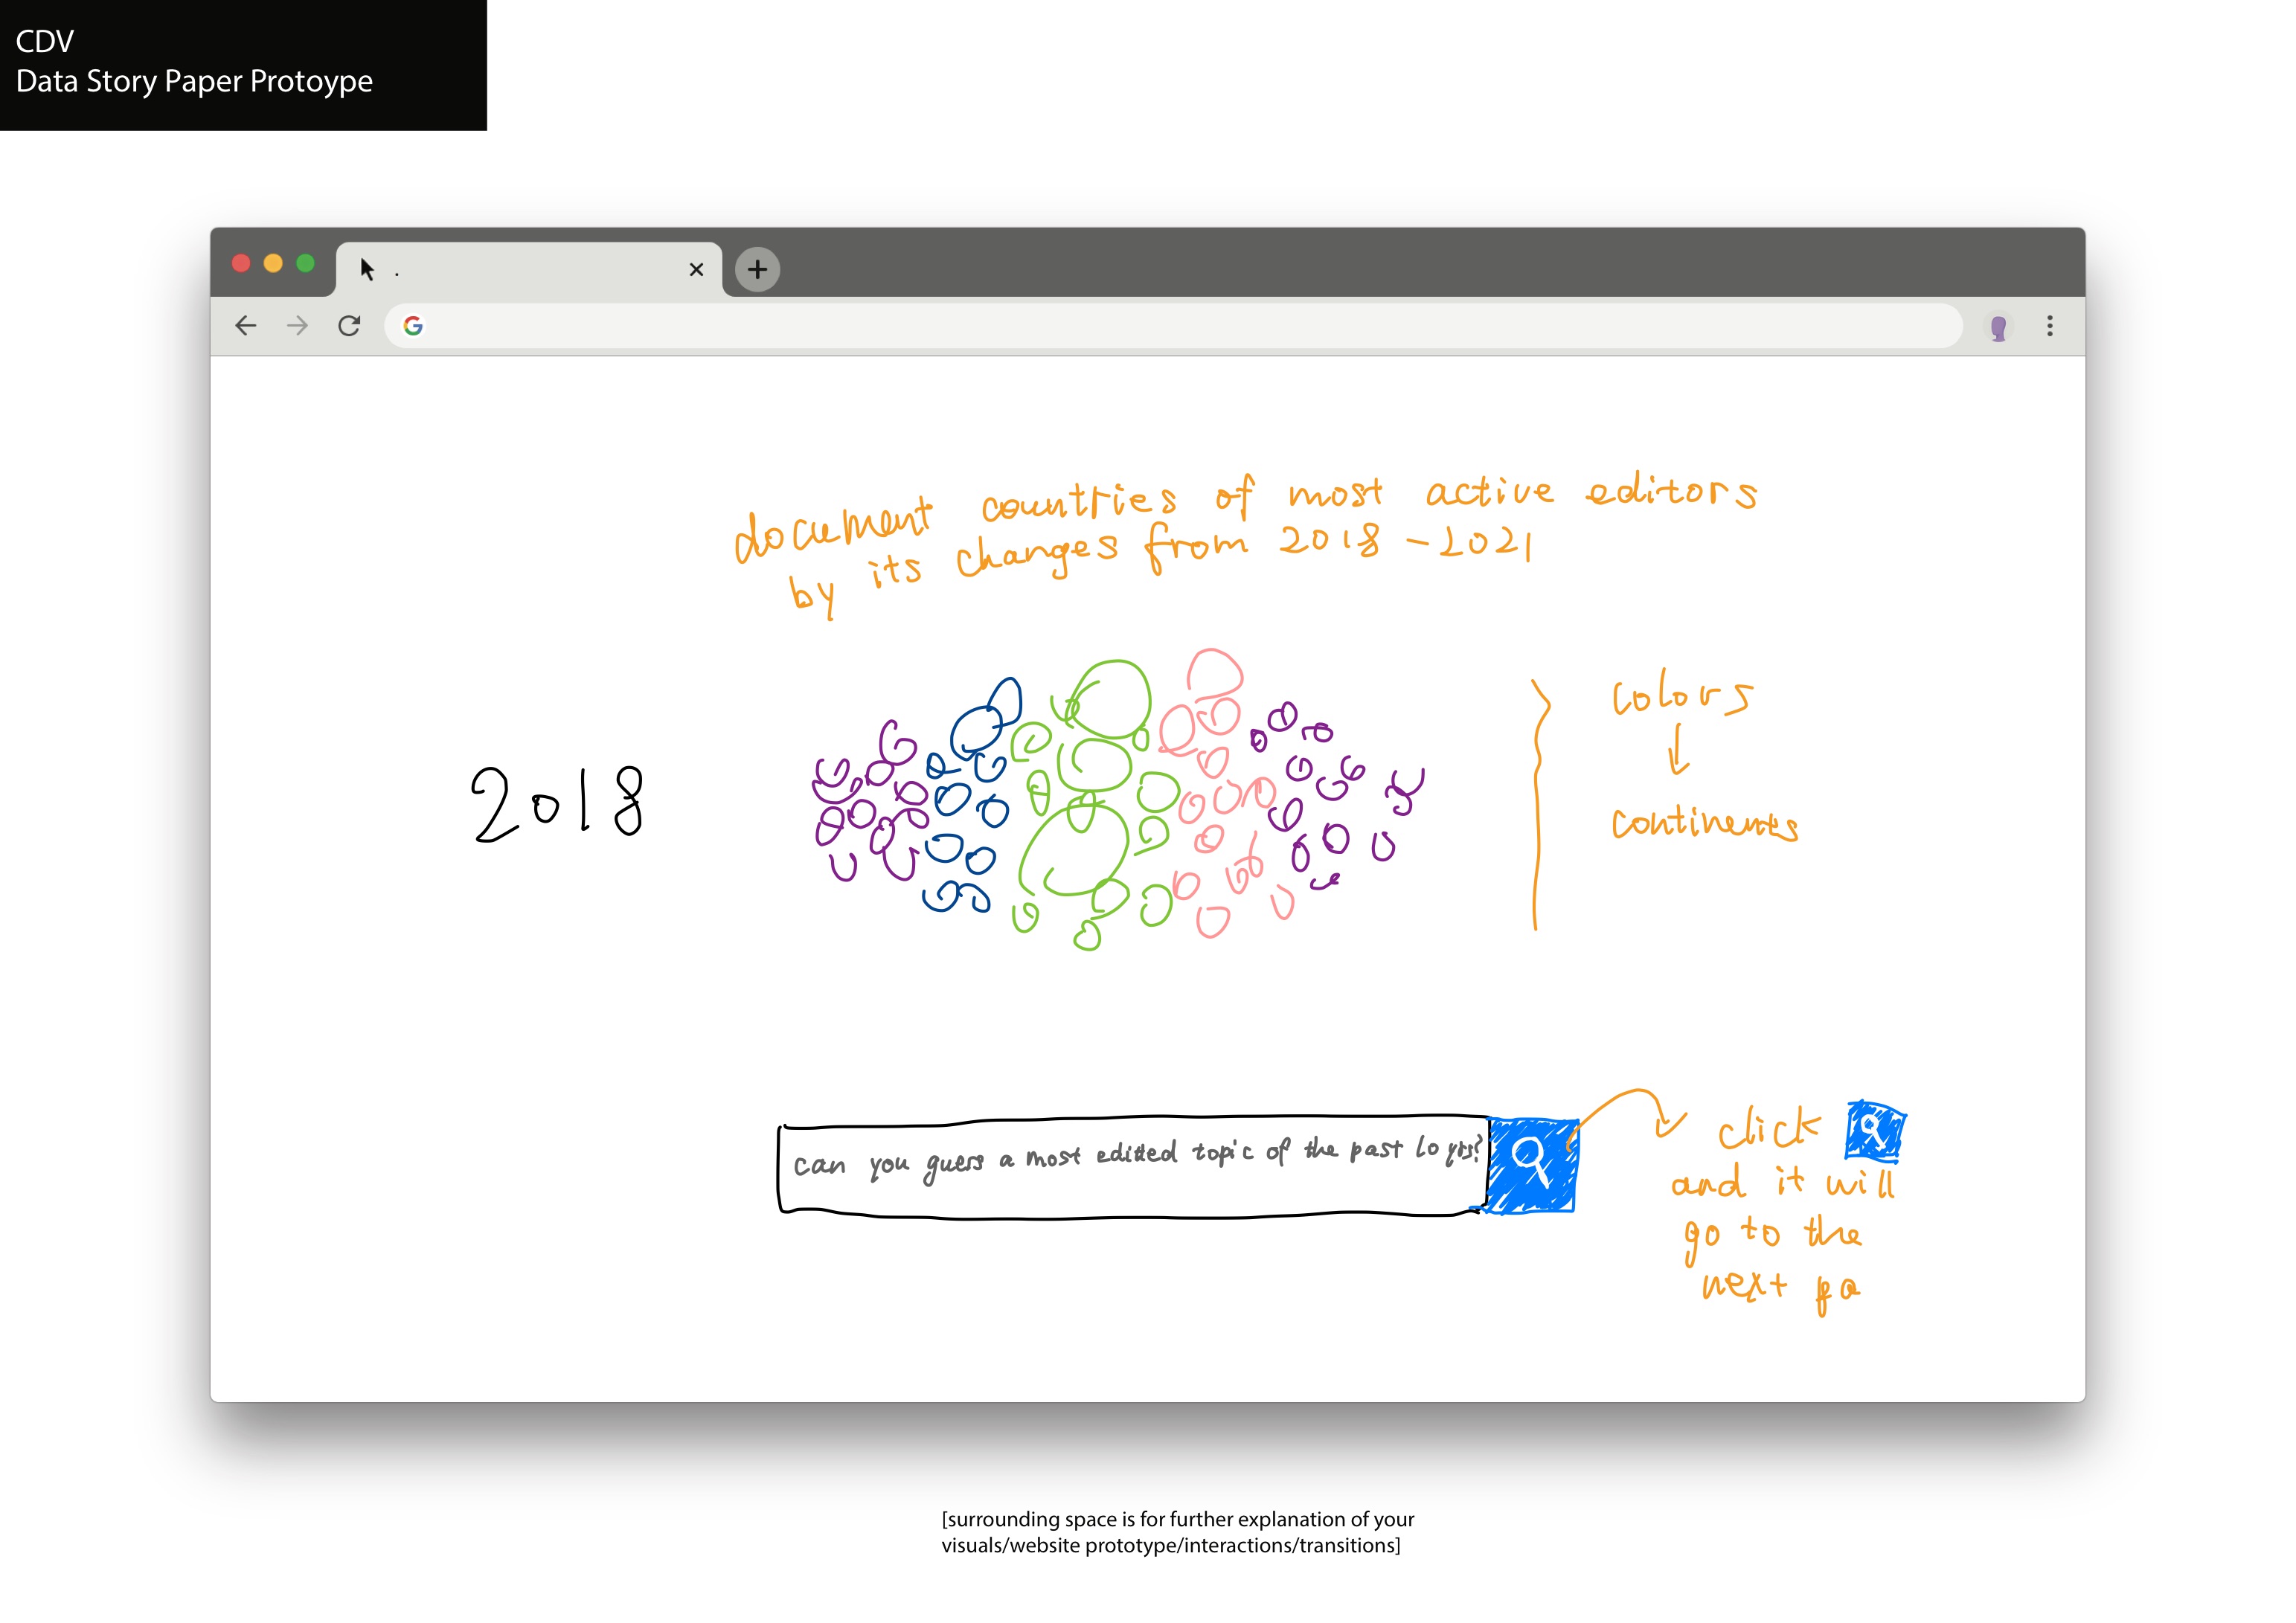 CDV
Data Story Paper Protoype
.
document countries of most active editors
by its changes from 2018 - 2021
2018
colors
continents
can you guess a most edited topic of the past
click
and it will
go to the
next pa
[surrounding space is for further explanation of your
visuals/website prototype/interactions/transitions]